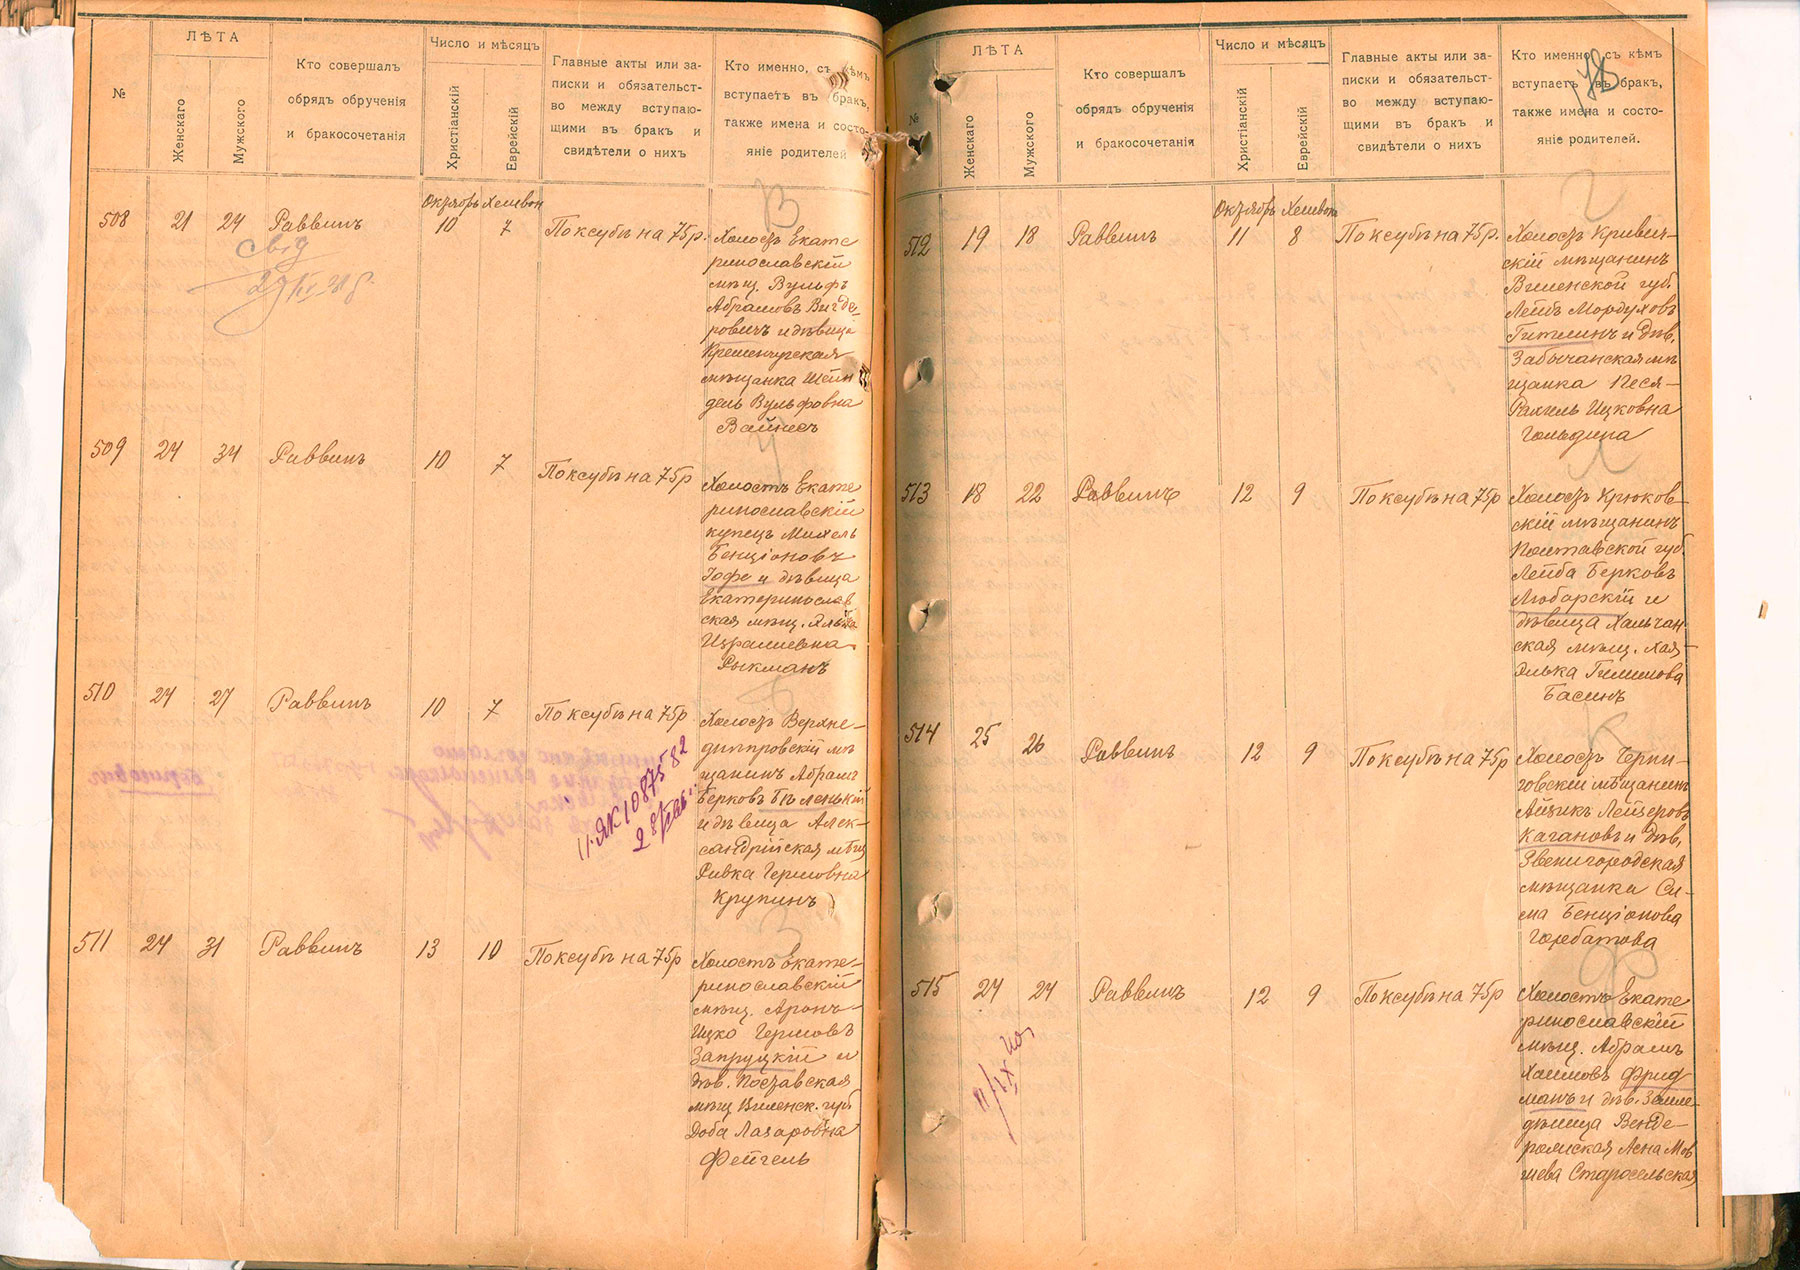 №
ЛѢТА
Женскаго
Мужского
Кто совершалъ
обрядъ обрученія
и бракосочетанія
Число и мѣсяцъ
Христіанскій
Еврейскій
Главные акты или за-
писки и обязательст-
во между вступаю-
щими въ бракъ и
свидѣтели о нихъ
Кто именно, съ кѣмъ
вступаетъ въ бракъ,
также имена и состо-
яніе родителей
Октябрь Хешвон
508 21 24 Раввинъ 10 7 По ксубѣ на 75 р.
В
Холостъ Екате
ринославскій
мѣщ. Вульфъ
Абрамовъ Вигде-
ровичъ и дѣвица
Кременчугская
мѣщанка Шейн
дель Вульфовна
Вайнес
509 24 34 Раввинъ 10 7 По ксубѣ на 75 р
Холостъ Екате
ринославскій
купецъ Михель
Бенціоновъ
Іофе и дѣвица
Екатеринослав
ская мѣщ.
Израилевна
Рыкманъ
510 24 27 Раввинъ 10 7 По ксубѣ на 75 р
Холостъ Верхне-
днѣпровскій мѣ
щанинъ Абрамъ
Берковъ Бѣленькій
и дѣвица Алек-
сандрійская мѣщ
Ривка Гершовна
Крупинъ
II-ЯК 1087582
511 24 31 Раввинъ 13 10 По ксубѣ на 75 р
З
Холостъ Екате-
ринославскій
мѣщ. Аронъ-
Ицко Гершовъ
Запруцкій и
дѣв. Поставская
мѣщ Виленск. губ.
Доба Лазаровна
Фейгель
№
ЛѢТА
Женскаго
Мужского
Кто совершалъ
обрядъ обрученія
и бракосочетанія
Число и мѣсяцъ
Христіанскій
Еврейскій
Главные акты или за-
писки и обязательст-
во между вступаю-
щими въ бракъ и
свидѣтели о нихъ
Кто именно, съ кѣмъ
вступаетъ въ бракъ,
также имена и состо-
яніе родителей.
Октябрь Хешвон
512 19 18 Раввинъ 11 8 По ксубѣ на 75 р.
Г
Холостъ Кривич-
скій мѣщанинъ
Виленской губ.
Лейбъ Мордуховъ
Гитлинъ и дѣв.
Забычанская мѣ
щанка Песя-
Рахиль Ицковна
Гольдина
513 18 22 Раввинъ 12 9 По ксубѣ на 75 р
Л
Холостъ Крюков-
скій мѣщанинъ
Полтавской губ.
Лейба Берковъ
Любарскій и
дѣвица Хальчан
ская мѣщ. Хая-
Элька Гилимова
Басинъ
514 25 26 Раввинъ 12 9 По ксубѣ на 75 р
К
Холостъ Черни-
говскій мѣщанинъ
Айзикъ Лейзеровъ
Кагановъ и дѣв.
Звенигородская
мѣщанка Си-
ма Бенціонова
Горбатова
515 24 24 Раввинъ 12 9 По ксубѣ на 75 р
Ф
Холостъ Екате
ринославскій
мѣщ. Абрамъ
Хаимовъ Фрид
манъ и дѣв. Земле-
дѣлица

шева Старосельская